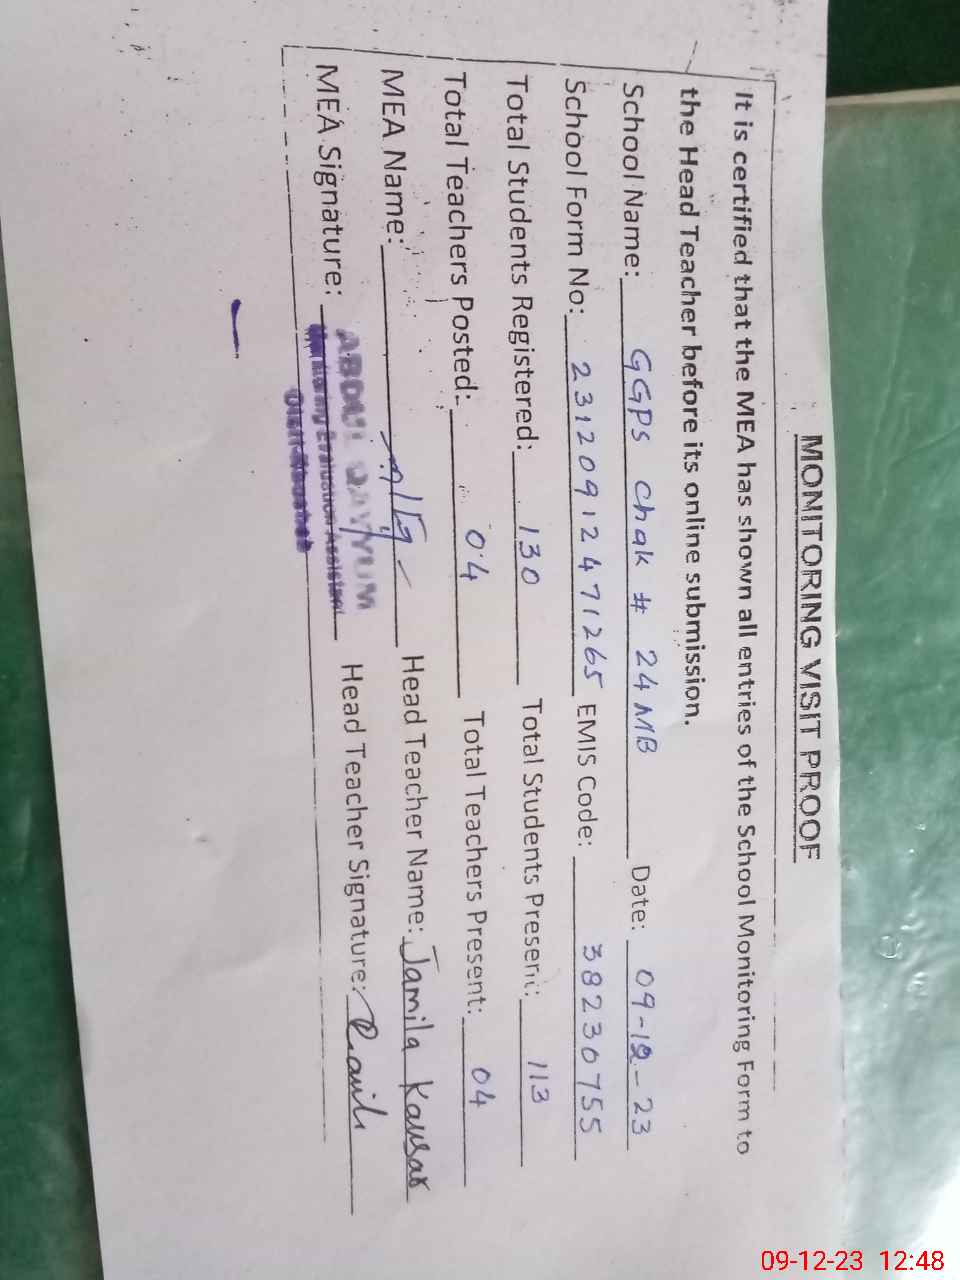 MONITORING VISIT PROOF
It is certified that the MEA has shown all entries of the School Monitoring Form to
the Head Teacher before its online submission.
School Name: GGPS Chak # 24 MB Date: 09-12-23
School Form No: 23120912471265 EMIS Code: 38230755
Total Students Registered: 130 Total Students Present: 113
Total Teachers Posted: 04 Total Teachers Present: 04
MEA Name: Head Teacher Name: Jamila Kausar
MEA Signature: Head Teacher Signature:
ABDUL QAYYUM
Monitoring Evaluation Assistant
09-12-23 12:48